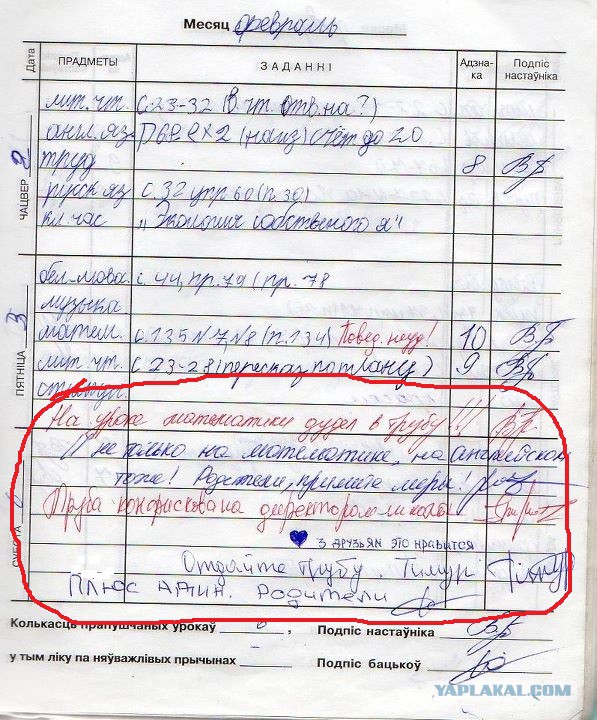 Месяц февраль
Дата ПРАДМЕТЫ ЗАДАННІ Адзнака Подпіс настаўніка
ЧАЦВЕР 2
лит. чт. с. 23-32 (В. чт. отв. на ?)
англ. яз. счёт до 20
труд 8
с. 32 упр 60 (п. 30)
кл. час "Экология собственого я"
ПЯТНІЦА 3
бел. мова. с. 44, пр. 79 (пр. 78
музыка.
матем. с. 135 №7 №8 (п. 134) Повед. неуд! 10
лит. чт. с 23-28 (пересказ по плану) 9
СУБОТА
На уроке математики дудел в трубу!!!
И не только на математике, на английском
тоже! Родители, примите меры!
Труба конфискована директором школы!
3 друзьям это нравится
Отдайте трубу. Тимур
Плюс Адин. Родители
Колькасць прапушчаных урокаў , Подпіс настаўніка
у тым ліку па няўважлівых прычынах Подпіс бацькоў
YAPLAKAL.COM